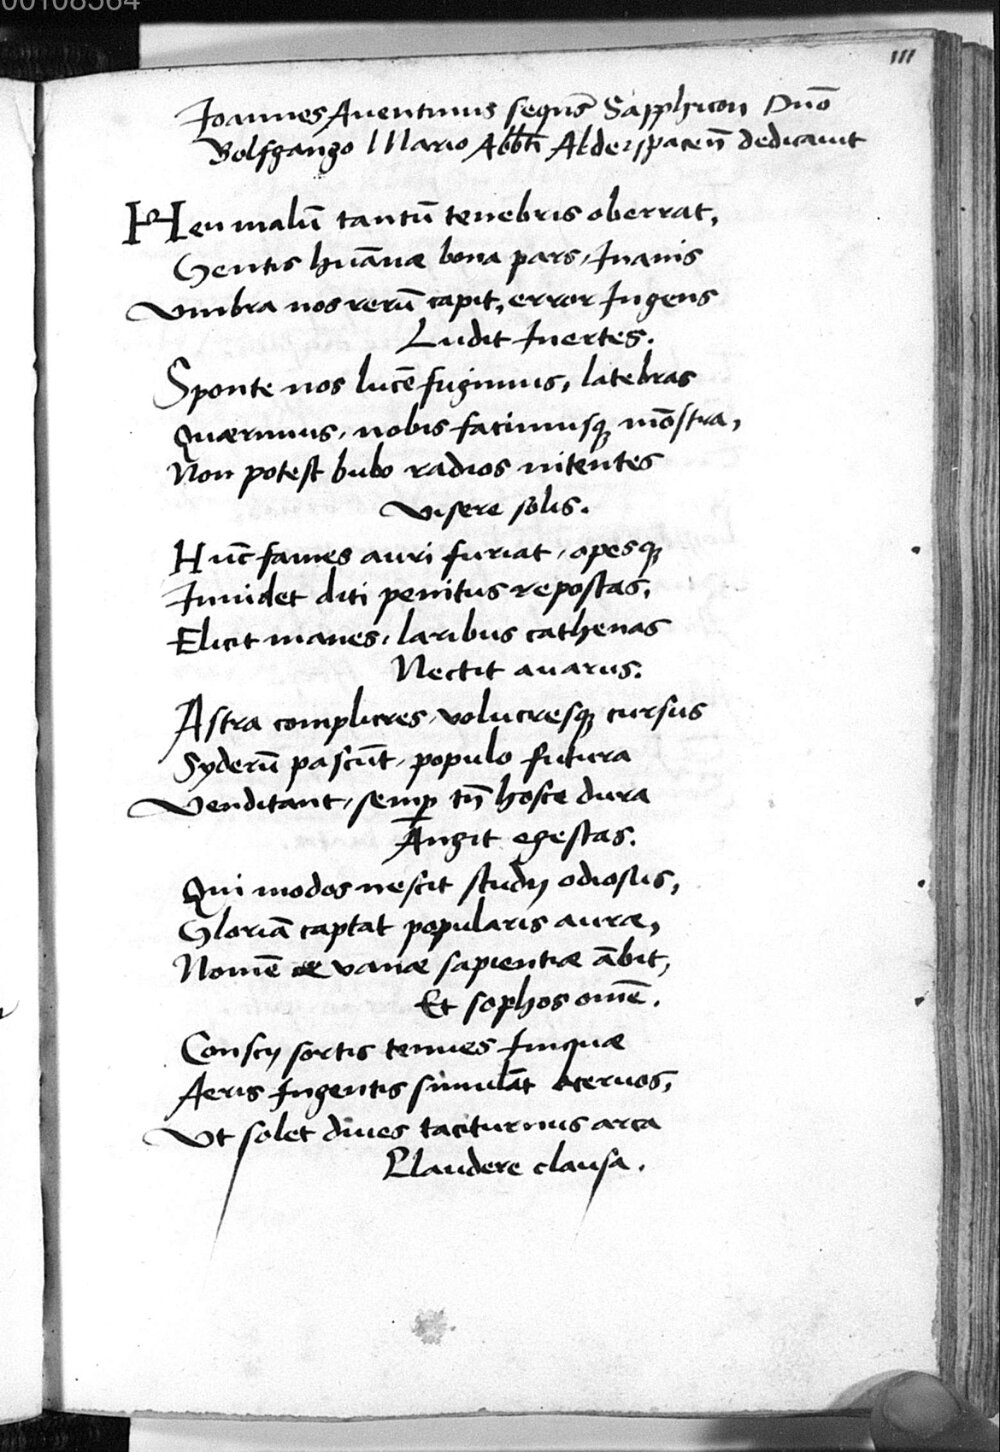 00108564
111
Joannes Auentinus sequēs Sapphicon Dn̄o
Bolfgango Mario Abbīi Alderspaceñ dedicauit
Heu malū tantū tenebris oberrat,
Gentis humānæ bona pars, Inanis
Vmbra nos rerū capit, error Ingens
Ludit Inertes.
Sponte nos lucē fugimus, latebras
Quærimus, nobis facimusq; mōstra,
Non potest bubo radios nitentes
Visere solis.
Hunc̄ fames auri furiat, opesq;
Inuidet diti penitus repostas,
Elicit manes, laribus cathenas
Nectit auarus.
Astra complures, volucresq; cursus
Syderū pascūt, populo futura
Venditant, semꝑ tn̄ hosce dura
Angit egestas.
Qui modos nescit studij odiosus,
Gloriā captat popularis auræ,
Nomē & vanæ sapientiæ ābit,
Et sophos omē.
Conscij sortis tenues Iniquæ
Aeris Ingentis simulāt aceruos,
Vt solet diues taciturnus arca
Claudere clausa.